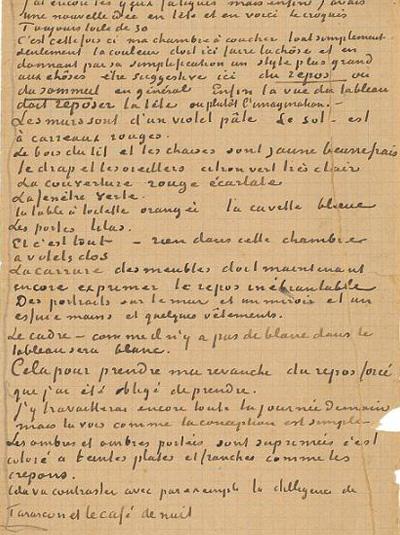 j'ai encore les yeux fatigués mais enfin j'avais
une nouvelle idée en tête et en voici le croquis
Toujours toile de 30
C'est cette fois ci ma chambre à coucher tout simplement
seulement la couleur doit ici faire la chose et en
donnant par sa simplification un style plus grand
aux choses être suggestive ici du repos ou
du sommeil en général Enfin la vue du tableau
doit reposer la tête ou plutôt l'imagination. –
Les murs sont d'un violet pâle Le sol – est
à carreaux rouges.
Le bois du lit et les chaises sont jaune beurre frais
le drap et les oreillers citron vert très clair
La couverture rouge écarlate
La fenêtre verte.
la table à toilette orangée la cuvette bleue
Les portes lilas.
Et c'est tout – rien dans cette chambre
à volets clos
La carrure des meubles doit maintenant
encore exprimer le repos inébranlable
Des portraits sur le mur et un miroir et un
essuie mains et quelques vêtements.
Le cadre – comme il n'y a pas de blanc dans le
tableau sera blanc.
Cela pour prendre ma revanche du repos forcé
que j'ai été obligé de prendre.
J'y travaillerai encore toute la journée demain
mais tu vois comme la conception est simple –
Les ombres et ombres portées sont supprimées c'est
coloré à teintes plates et franches comme les
crepons.
Cela va contraster avec par exemple la diligence de
Tarascon et le café de nuit